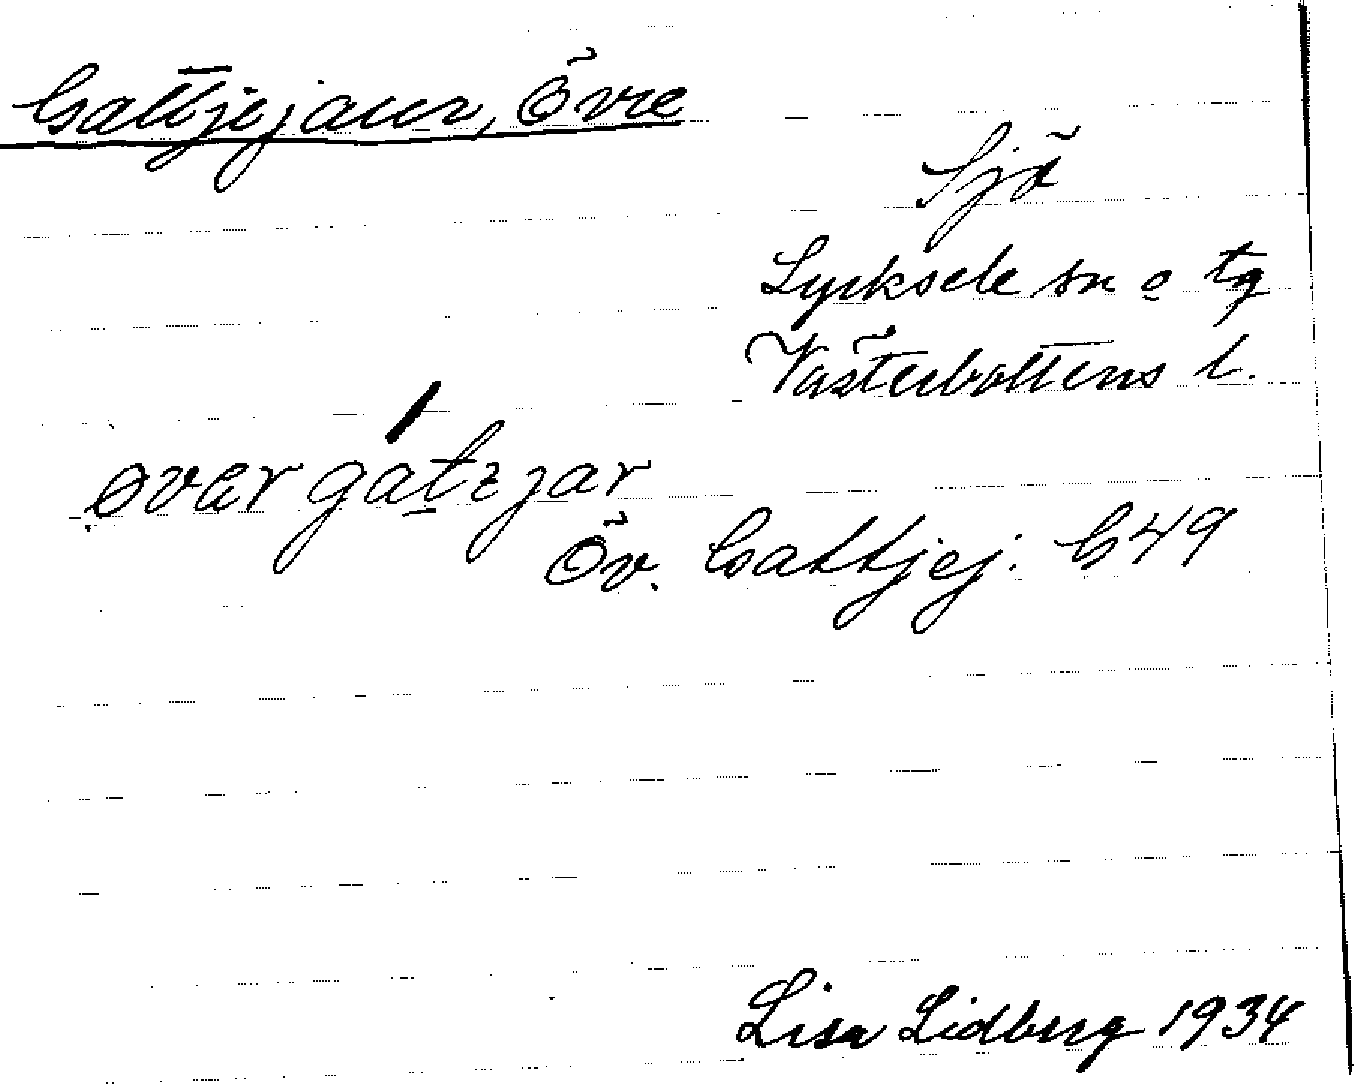 Gattjejaur, Övre
Sjö
Lycksele sn o tg
Västerbottens l.
øvər gátzjar
Öv. Gattjej. G49
Lisa Lidberg 1934